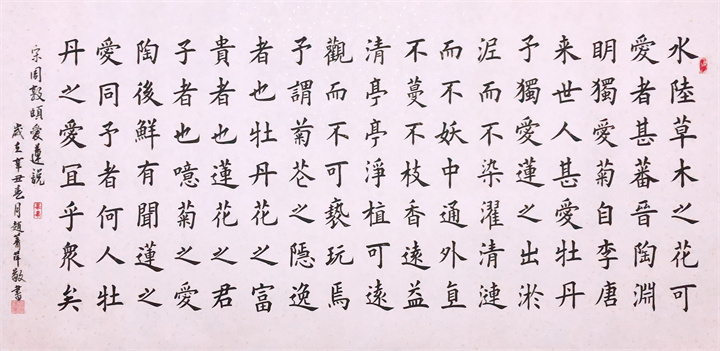 水陸草木之花可
愛者甚蕃晉陶淵
明獨愛菊自李唐
来世人甚愛牡丹
予獨愛蓮之出淤
泥而不染濯清漣
而不妖中通外直
不蔓不枝香遠益
清亭亭淨植可遠
觀而不可褻玩焉
予謂菊花之隱逸
者也牡丹花之富
貴者也蓮花之君
子者也噫菊之愛
陶後鮮有聞蓮之
愛同予者何人牡
丹之愛宜乎衆矣
宋周敦頤愛蓮説
歲在辛丑春月趙敬書